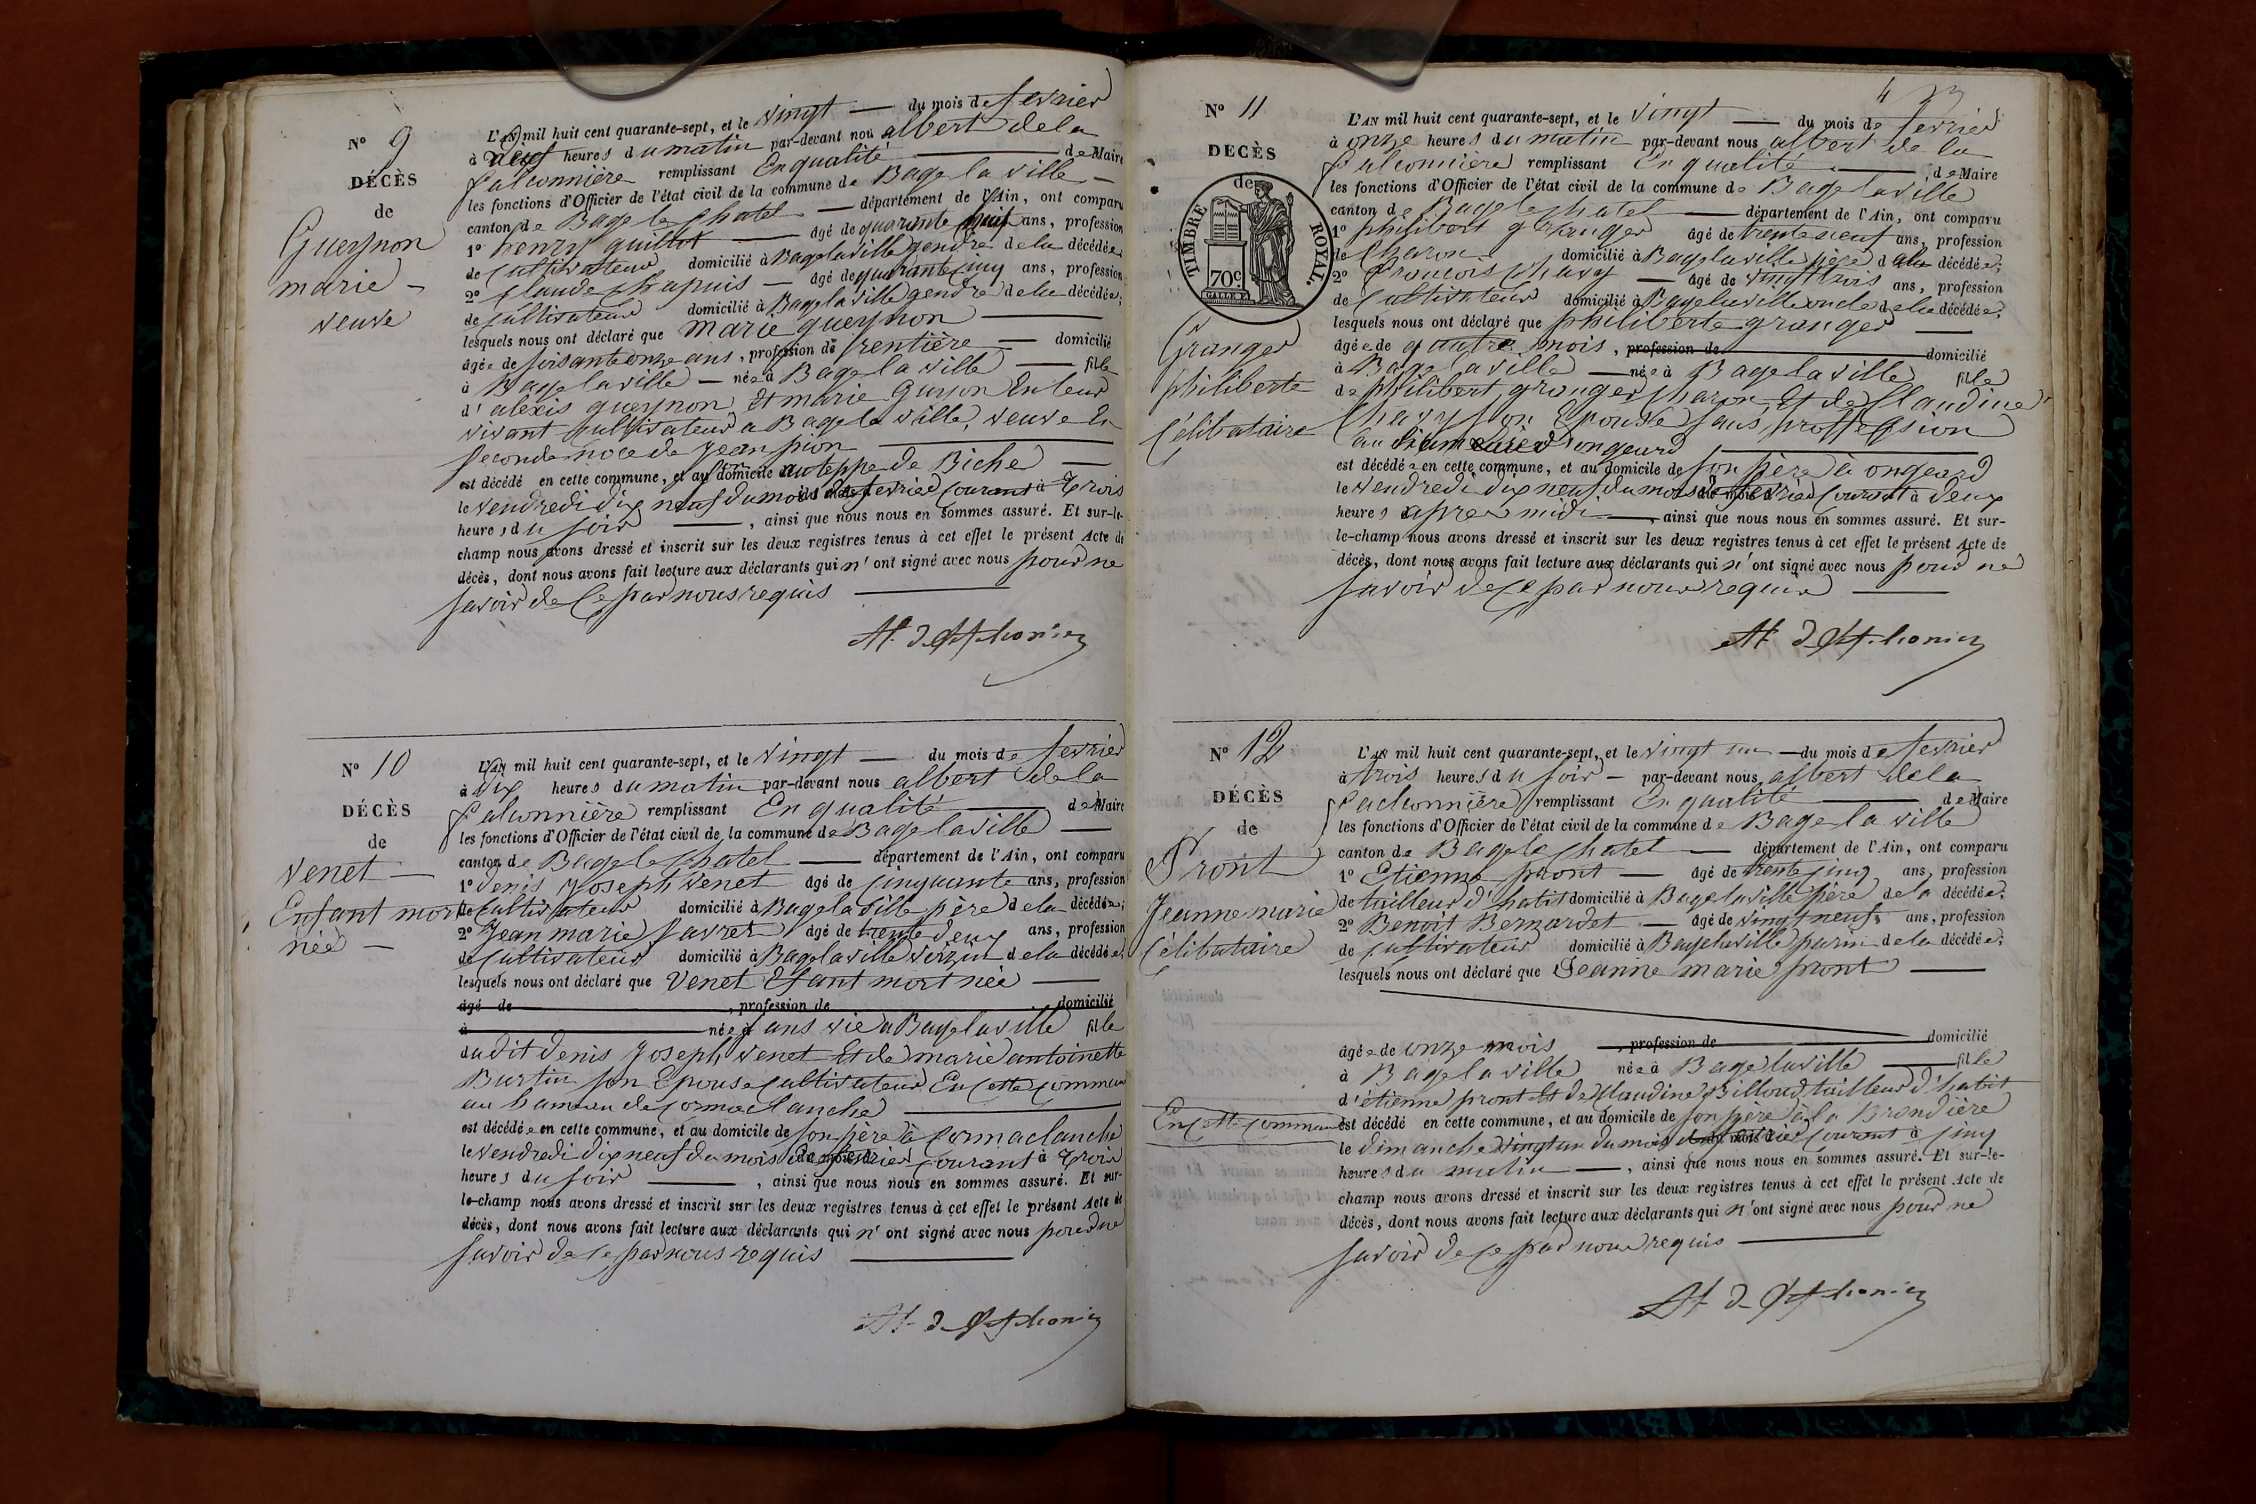 N° 9
DÉCÈS
de
Gueynon
marie -
veuve
L'AN mil huit cent quarante-sept, et le vingt — du mois de fevrier
à neuf heures du matin par-devant nous albert de la
falconnière remplissant En qualité — de Maire
les fonctions d'Officier de l'état civil de la commune de Bage la ville -
canton de Bage le Chatel — département de l'Ain, ont comparu
1° henry guillot — âgé de quarante huit ans, profession
de Cultivateur domicilié à Bage la ville gendre de la décédée;
2° Claude Chapuis — âgé de quarante cinq ans, profession
de Cultivateur domicilié à Bage la ville gendre de la décédée;
lesquels nous ont déclaré que marie queynon —
âgée de soisante onze ans, profession de rentière — domicilié
à Bage la ville — née à Bage la ville — fille
d' alexis queynon Et marie Guyon En leur
vivant Cultivateur a Bage la ville, veuve En
seconde noce de Jean pion —
est décédé en cette commune, et au domicile au teppe de Biche —
le vendredi dix neuf du mois de fevrier Courant à trois
heures du soir —, ainsi que nous nous en sommes assuré. Et sur-le-
champ nous avons dressé et inscrit sur les deux registres tenus à cet effet le présent Acte de
décès, dont nous avons fait lecture aux déclarants qui n' ont signé avec nous pour ne
savoir de Ce par nous requis —
N° 10
DÉCÈS
de
venet —
Enfant mort
née —
L'AN mil huit cent quarante-sept, et le vingt — du mois de fevrier
à dix heures du matin par-devant nous albert de la
falconnière remplissant En qualité — de Maire
les fonctions d'Officier de l'état civil de la commune de Bage la ville —
canton de Bage le Chatel — département de l'Ain, ont comparu
1° denis Joseph venet âgé de Cinquante ans, profession
de Cultivateur domicilié à Bage la ville père de la décédée;
2° Jean marie favret âgé de trente deux ans, profession
de Cultivateur domicilié à Bage la ville voizin de la décédée;
lesquels nous ont déclaré que Venet Efant mort née —
âgé de , profession de domicilié
à née à sans vie a Bage la ville fille
du dit denis Joseph venet Et de marie antoinette
Burtin son Epouse Cultivateur En Cette Commune
au hameau de Cormaclanche —
est décédée en cette commune, et au domicile de son père à Cormaclanche
le vendredi dix neuf du mois de fevrier Courant à trois
heures du soir —, ainsi que nous nous en sommes assuré. Et sur-
le-champ nous avons dressé et inscrit sur les deux registres tenus à cet effet le présent Acte de
décès, dont nous avons fait lecture aux déclarants qui n' ont signé avec nous pour ne
savoir de Ce par nous requis —
N° 11
DECÈS
de
TIMBRE ROYAL.
70c
Granger
philiberte
Célibataire
L'AN mil huit cent quarante-sept, et le vingt — du mois de fevrier
à onze heures du matin par-devant nous albert de la
falconnière remplissant En qualité — de Maire
les fonctions d'Officier de l'état civil de la commune de Bage la ville
canton de Bage le Chatel — département de l'Ain, ont comparu
1° philibert granger âgé de trente neuf ans, profession
de Charon domicilié à Bage la ville père de la décédée;
2° francois Chavy — âgé de vingt trois ans, profession
de Cultivateur domicilié à Bage la ville oncle de la décédée;
lesquels nous ont déclaré que philiberte granger —
âgée de quatre mois, profession de domicilié
à Bage la ville — née à Bage la ville fille
de philibert granger Charon Et de Claudine
Chavy son Epouse sans proffession
au hameau d'ongeard —
est décédée en cette commune, et au domicile de son père à ongeard
le vendredi dix neuf du mois de fevrier Courant à deux
heures apres midi —, ainsi que nous nous en sommes assuré. Et sur-
le-champ nous avons dressé et inscrit sur les deux registres tenus à cet effet le présent Acte de
décès, dont nous avons fait lecture aux déclarants qui n' ont signé avec nous pour ne
savoir de Ce par nous requis —
N° 12
DÉCÈS
de
Pront
Jeanne marie
Célibataire
L'AN mil huit cent quarante-sept, et le vingt un — du mois de fevrier
à trois heures du soir - par-devant nous albert de la
falconnière remplissant En qualité — de Maire
les fonctions d'Officier de l'état civil de la commune de Bage la ville
canton de Bage le Chatel — département de l'Ain, ont comparu
1° Etienne pront — âgé de trente cinq ans, profession
de tailleur d'habit domicilié à Bage la ville père de la décédée;
2° Benoit Bernardet — âgé de vingt neuf ans, profession
de Cultivateur domicilié à Bage la ville parin de la décédée;
lesquels nous ont déclaré que Jeanne marie pront —
âgée de onze mois , profession de domicilié
à Bage la ville née à Bage la ville — fille
d' étienne pront Et de Claudine Billoud tailleur d'habit
En Cette Commune
est décédé en cette commune, et au domicile de son père à la Brondière
le dimanche vingt un du mois de fevrier Courant à Cinq
heures du matin —, ainsi que nous nous en sommes assuré. Et sur-le-
champ nous avons dressé et inscrit sur les deux registres tenus à cet effet le présent Acte de
décès, dont nous avons fait lecture aux déclarants qui n' ont signé avec nous pour ne
savoir de Ce par nous requis —